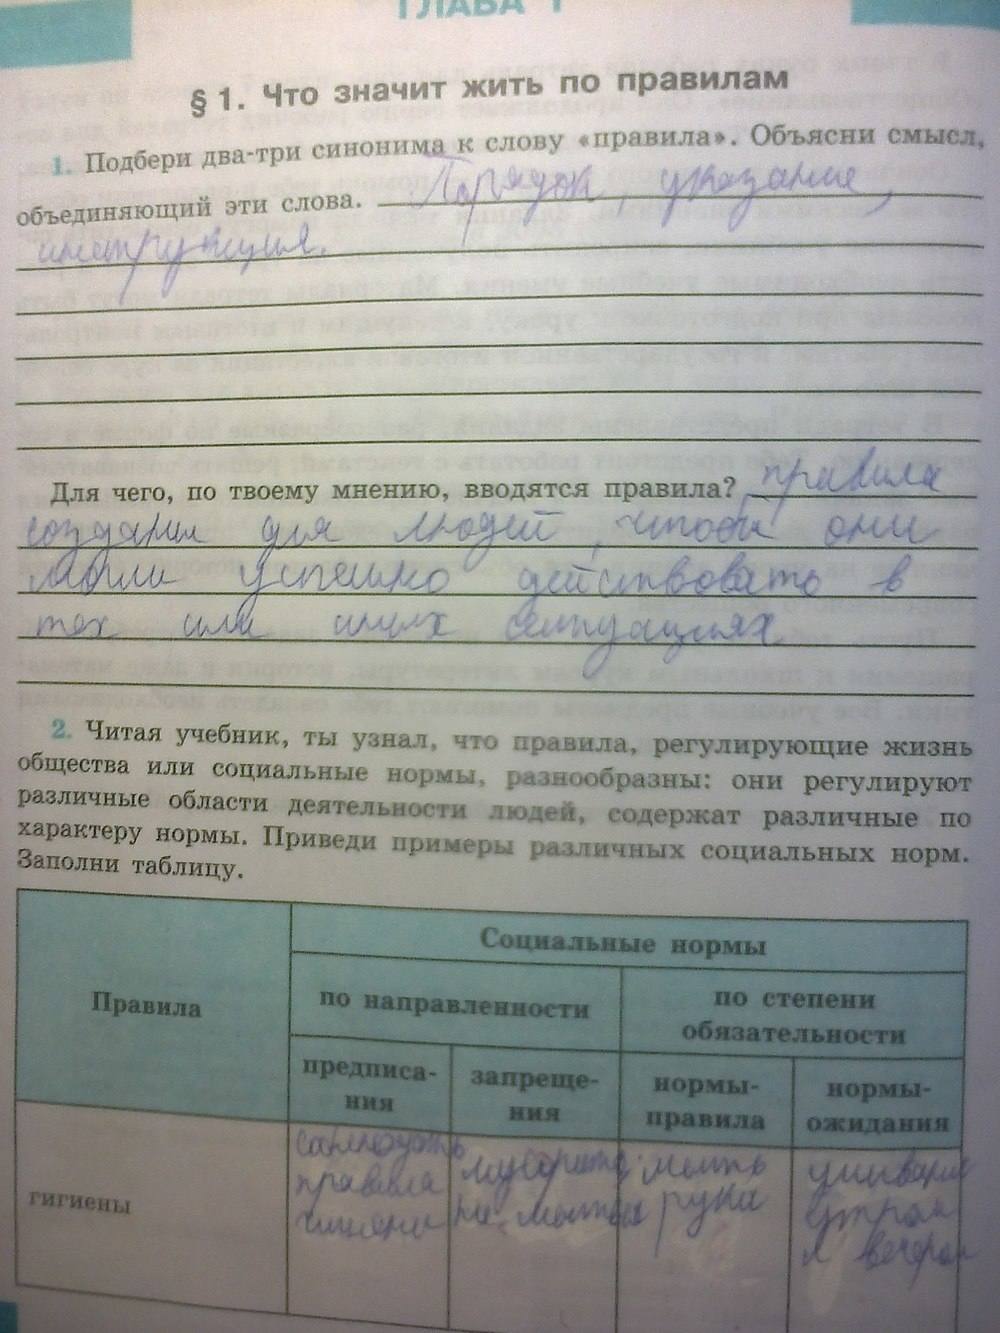 ГЛАВА 1
§ 1. Что значит жить по правилам
1. Подбери два-три синонима к слову «правила». Объясни смысл,
объединяющий эти слова. Порядок, указание,
инструкция.
Для чего, по твоему мнению, вводятся правила? правила
созданы для людей, чтобы они
могли успешно действовать в
тех или иных ситуациях.
2. Читая учебник, ты узнал, что правила, регулирующие жизнь
общества или социальные нормы, разнообразны: они регулируют
различные области деятельности людей, содержат различные по
характеру нормы. Приведи примеры различных социальных норм.
Заполни таблицу.
Правила
Социальные нормы
по направленности
по степени
обязательности
предписа-
ния
запреще-
ния
нормы-
правила
нормы-
ожидания
гигиены
правила
гигиены
мусорить,
не мыться
мыть
руки
умывание
утром
и вечером